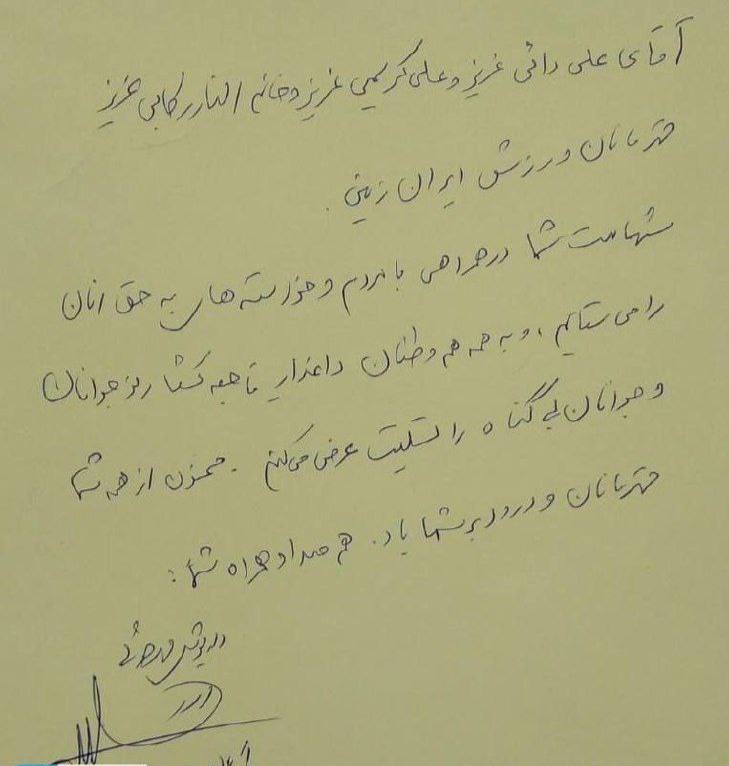 آقای علی دائی عزیز و علی کریمی عزیز و خانم الناز رکابی عزیز
قهرمانان ورزش ایران زمین.
شهامت شما در همراهی با مردم و خواسته های به حق انان
را می ستایم، و به همه هم وطنان داغدار فاجعه کشتار نوجوانان
و جوانان بی گناه را تسلیت عرض می کنم. ممنون از همه شما
قهرمانان و درود بر شما باد. هم صدا و همراه شما:
داریوش مهرجوئی